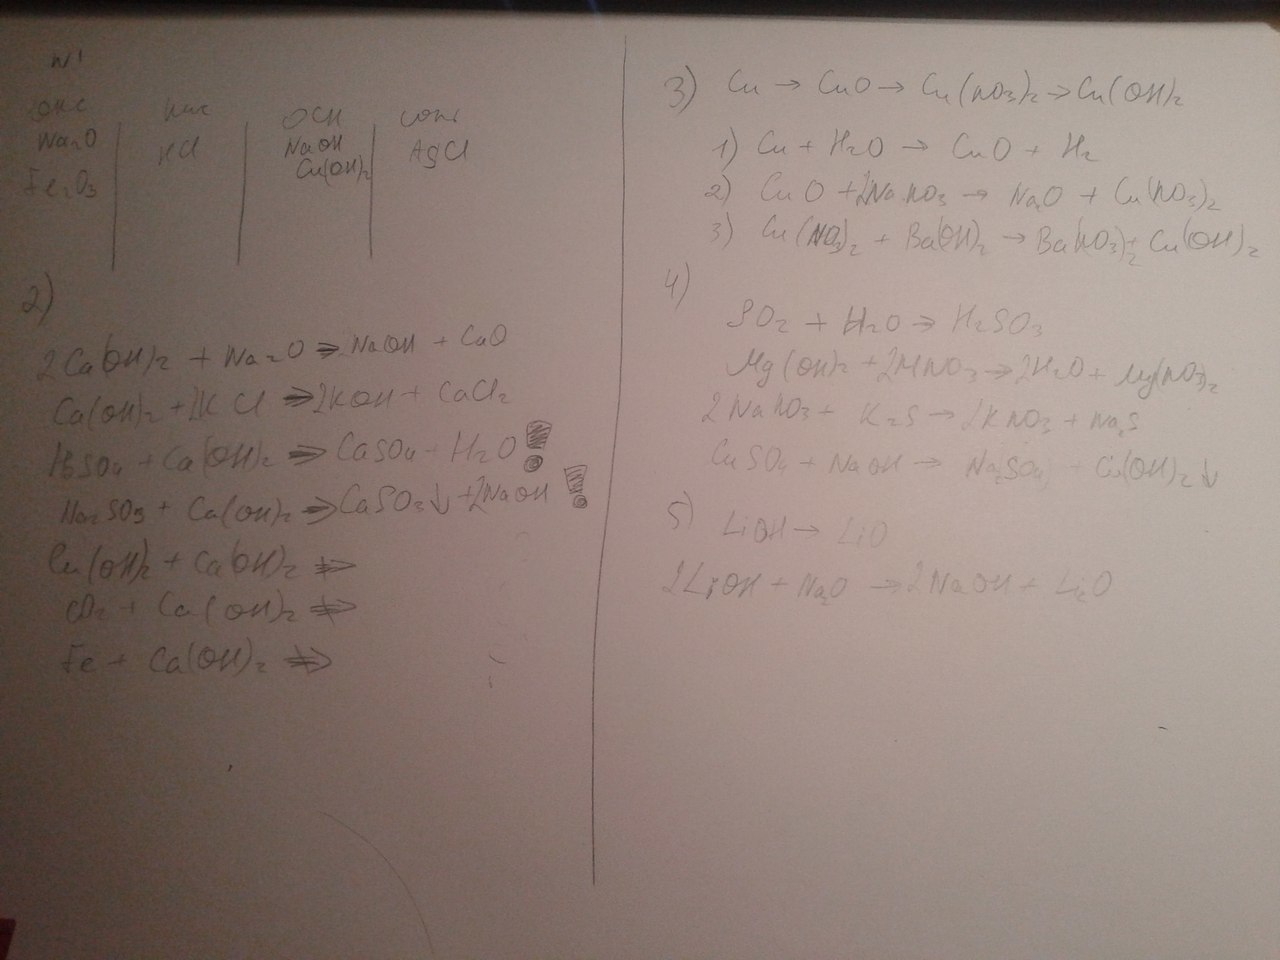 N1
Na₂O HCl NaOH AgCl
Fe₂O₃ Cu(OH)₂
2)
2Ca(OH)₂ + Na₂O ⇒ NaOH + CaO
Ca(OH)₂ + 2KCl ⇒ 2KOH + CaCl₂
H₂SO₄ + Ca(OH)₂ ⇒ CaSO₄ + H₂O !
Na₂SO₃ + Ca(OH)₂ ⇒ CaSO₃↓ + 2NaOH !
Cu(OH)₂ + Ca(OH)₂ ⇏
+ Ca(OH)₂ ⇏
Fe + Ca(OH)₂ ⇏
3) Cu → CuO → Cu(NO₃)₂ → Cu(OH)₂
1) Cu + H₂O → CuO + H₂
2) CuO + 2NaNO₃ → Na₂O + Cu(NO₃)₂
3) Cu(NO₃)₂ + Ba(OH)₂ → Ba(NO₃)₂ + Cu(OH)₂
4)
SO₂ + H₂O → H₂SO₃
Mg(OH)₂ + 2HNO₃ → 2H₂O + Mg(NO₃)₂
2NaNO₃ + K₂S → 2KNO₃ + Na₂S
CuSO₄ + NaOH → Na₂SO₄ + Cu(OH)₂↓
5)
LiOH → LiO
2LiOH + Na₂O → 2NaOH + Li₂O